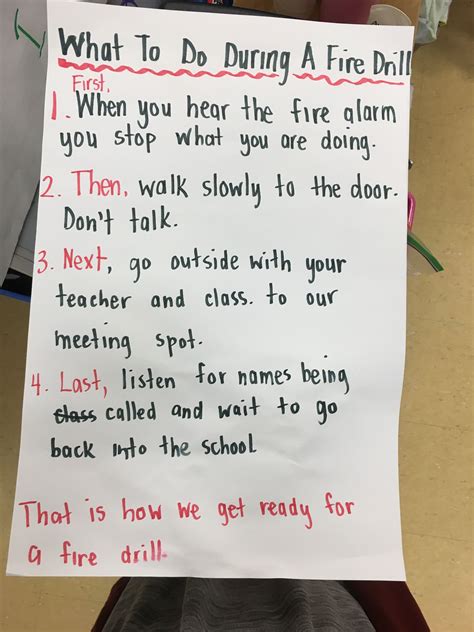 What To Do During A Fire Drill
First,
1. When you hear the fire alarm
you stop what you are doing.
2. Then, walk slowly to the door.
Don't talk.
3. Next, go outside with your
teacher and class. to our
meeting spot.
4. Last, listen for names being
class called and wait to go
back into the school
That is how we get ready for
a fire drill.